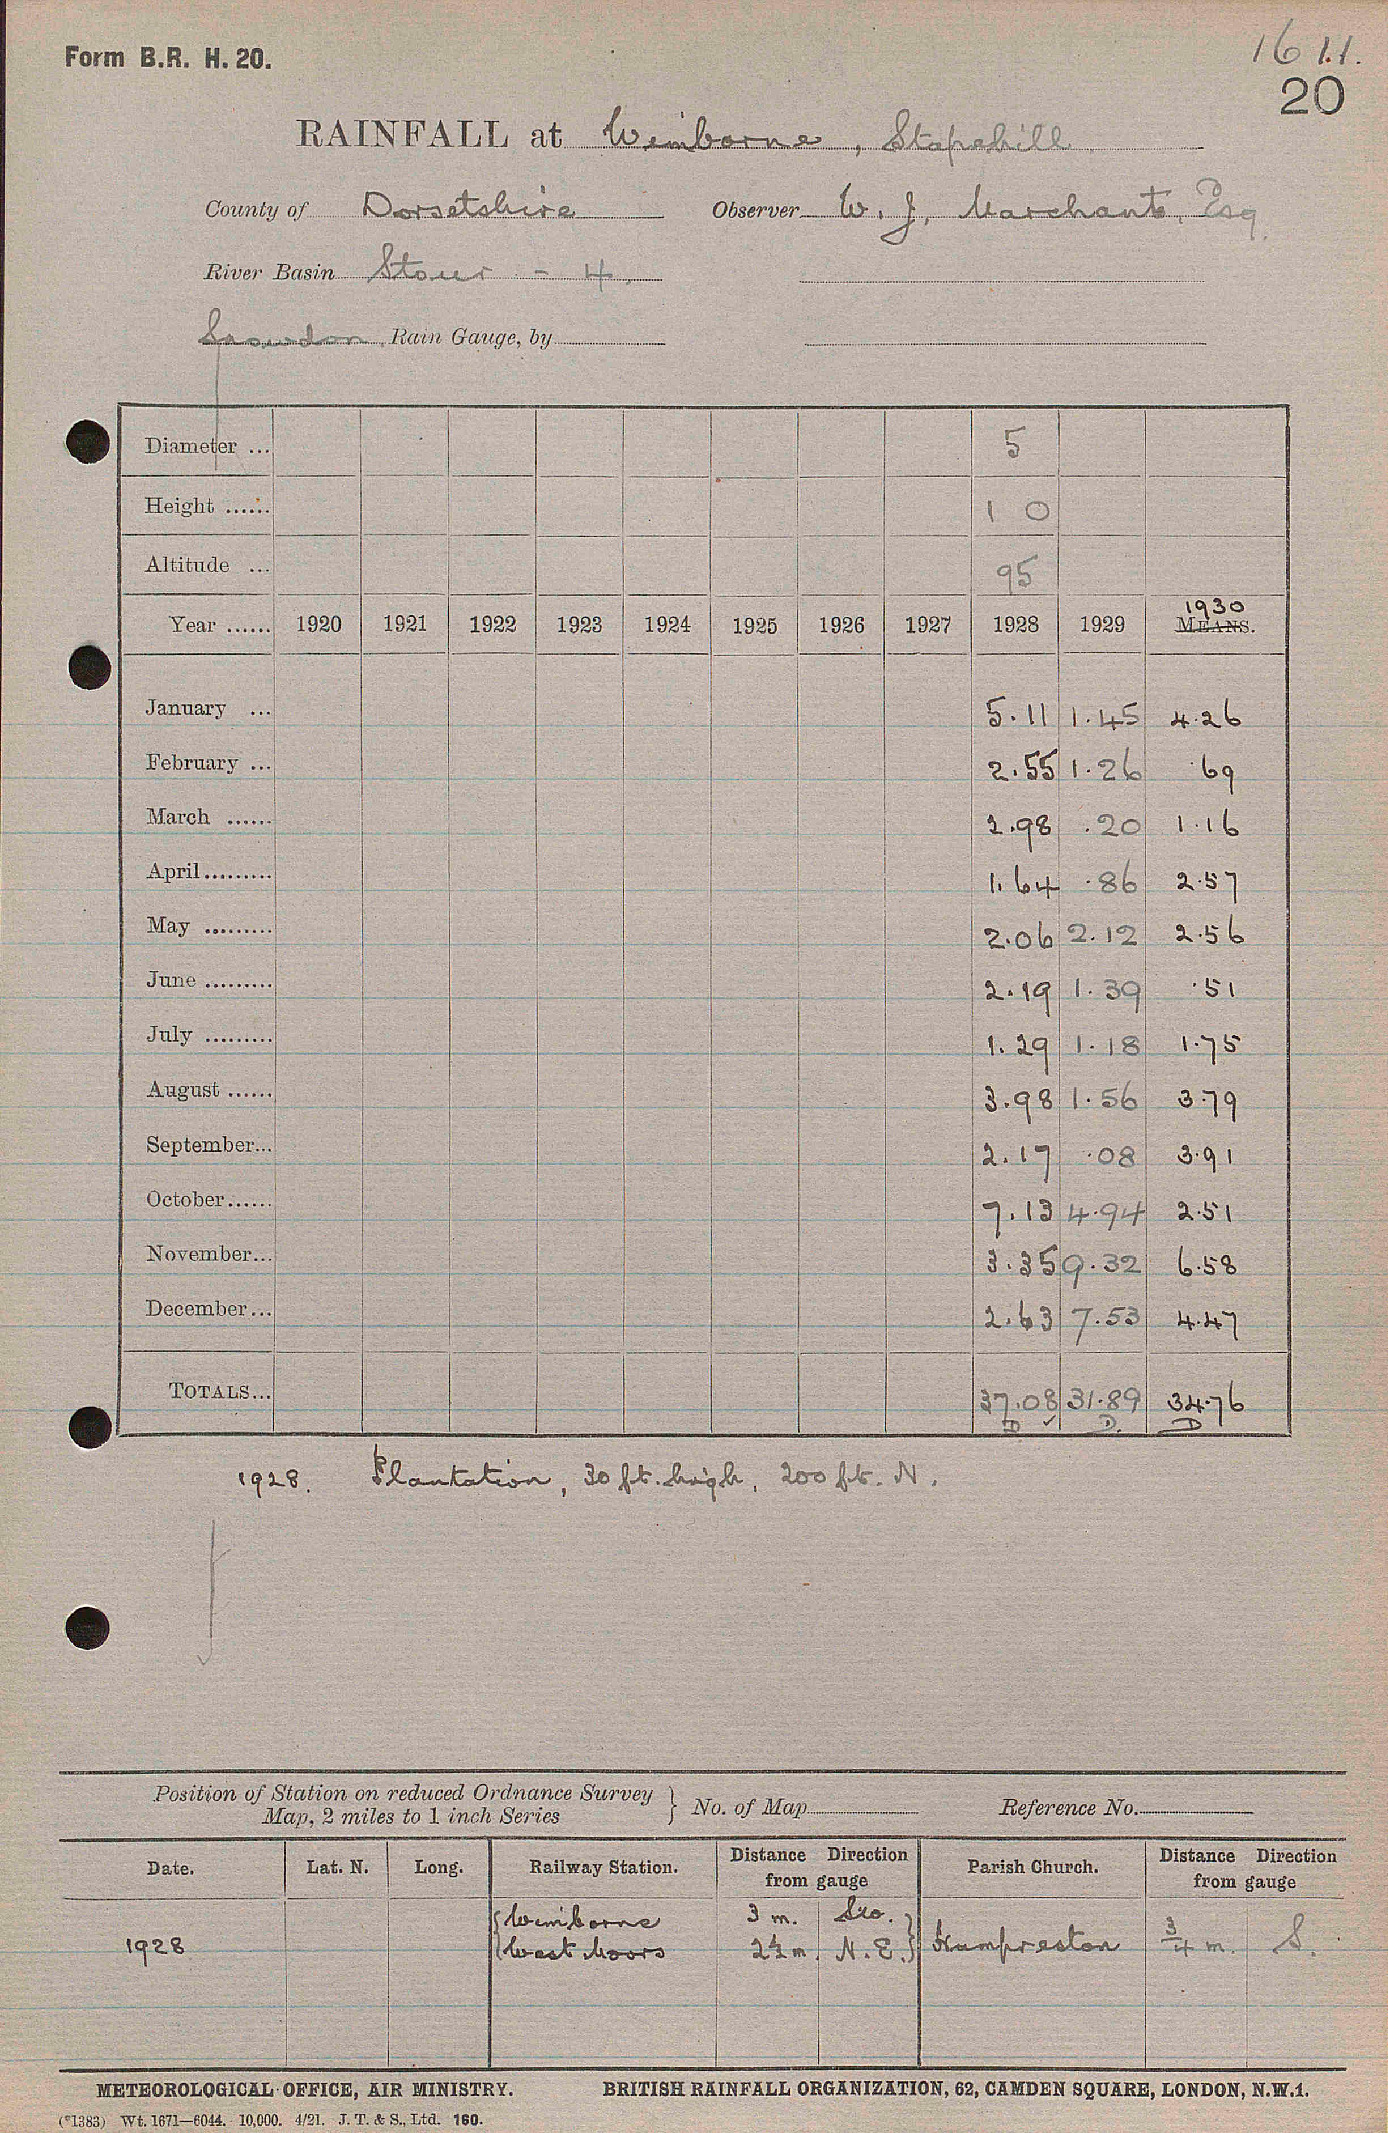 Form B.R. H. 20.
16 11.
20
RAINFALL at Wimborne, Stapehill
County of Dorsetshire Observer W. J. Marchant, Esq.
River Basin Stour - 4
Snowdon Rain Gauge, by
Diameter ... 5
Height ...... 1 0
Altitude ... 95
1930
Year ...... 1920 1921 1922 1923 1924 1925 1926 1927 1928 1929 MEANS.
January ... 5.11 1.45 4.26
February ... 2.55 1.26 .69
March ...... 2.98 .20 1.16
April ......... 1.64 .86 2.57
May ......... 2.06 2.12 2.56
June ......... 2.19 1.39 .51
July ......... 1.29 1.18 1.75
August ...... 3.98 1.56 3.79
September... 2.17 .08 3.91
October...... 7.13 4.94 2.51
November... 3.35 9.32 6.58
December... 2.63 7.53 4.47
TOTALS... 37.08 31.89 34.76
D ✓ D. D
1928. Plantation, 30 ft. high, 200 ft. N.
Position of Station on reduced Ordnance Survey } No. of Map Reference No.
Map, 2 miles to 1 inch Series
Date. Lat. N. Long. Railway Station. Distance Direction from gauge Parish Church. Distance Direction from gauge
{Wimborne 3 m. }
1928 {West Moors 2½ m. N.E.} Hampreston ¾ m. S.
METEOROLOGICAL OFFICE, AIR MINISTRY. BRITISH RAINFALL ORGANIZATION, 62, CAMDEN SQUARE, LONDON, N.W.1.
(*1383) Wt. 1671—6044. 10,000. 4/21. J. T. & S., Ltd. 160.